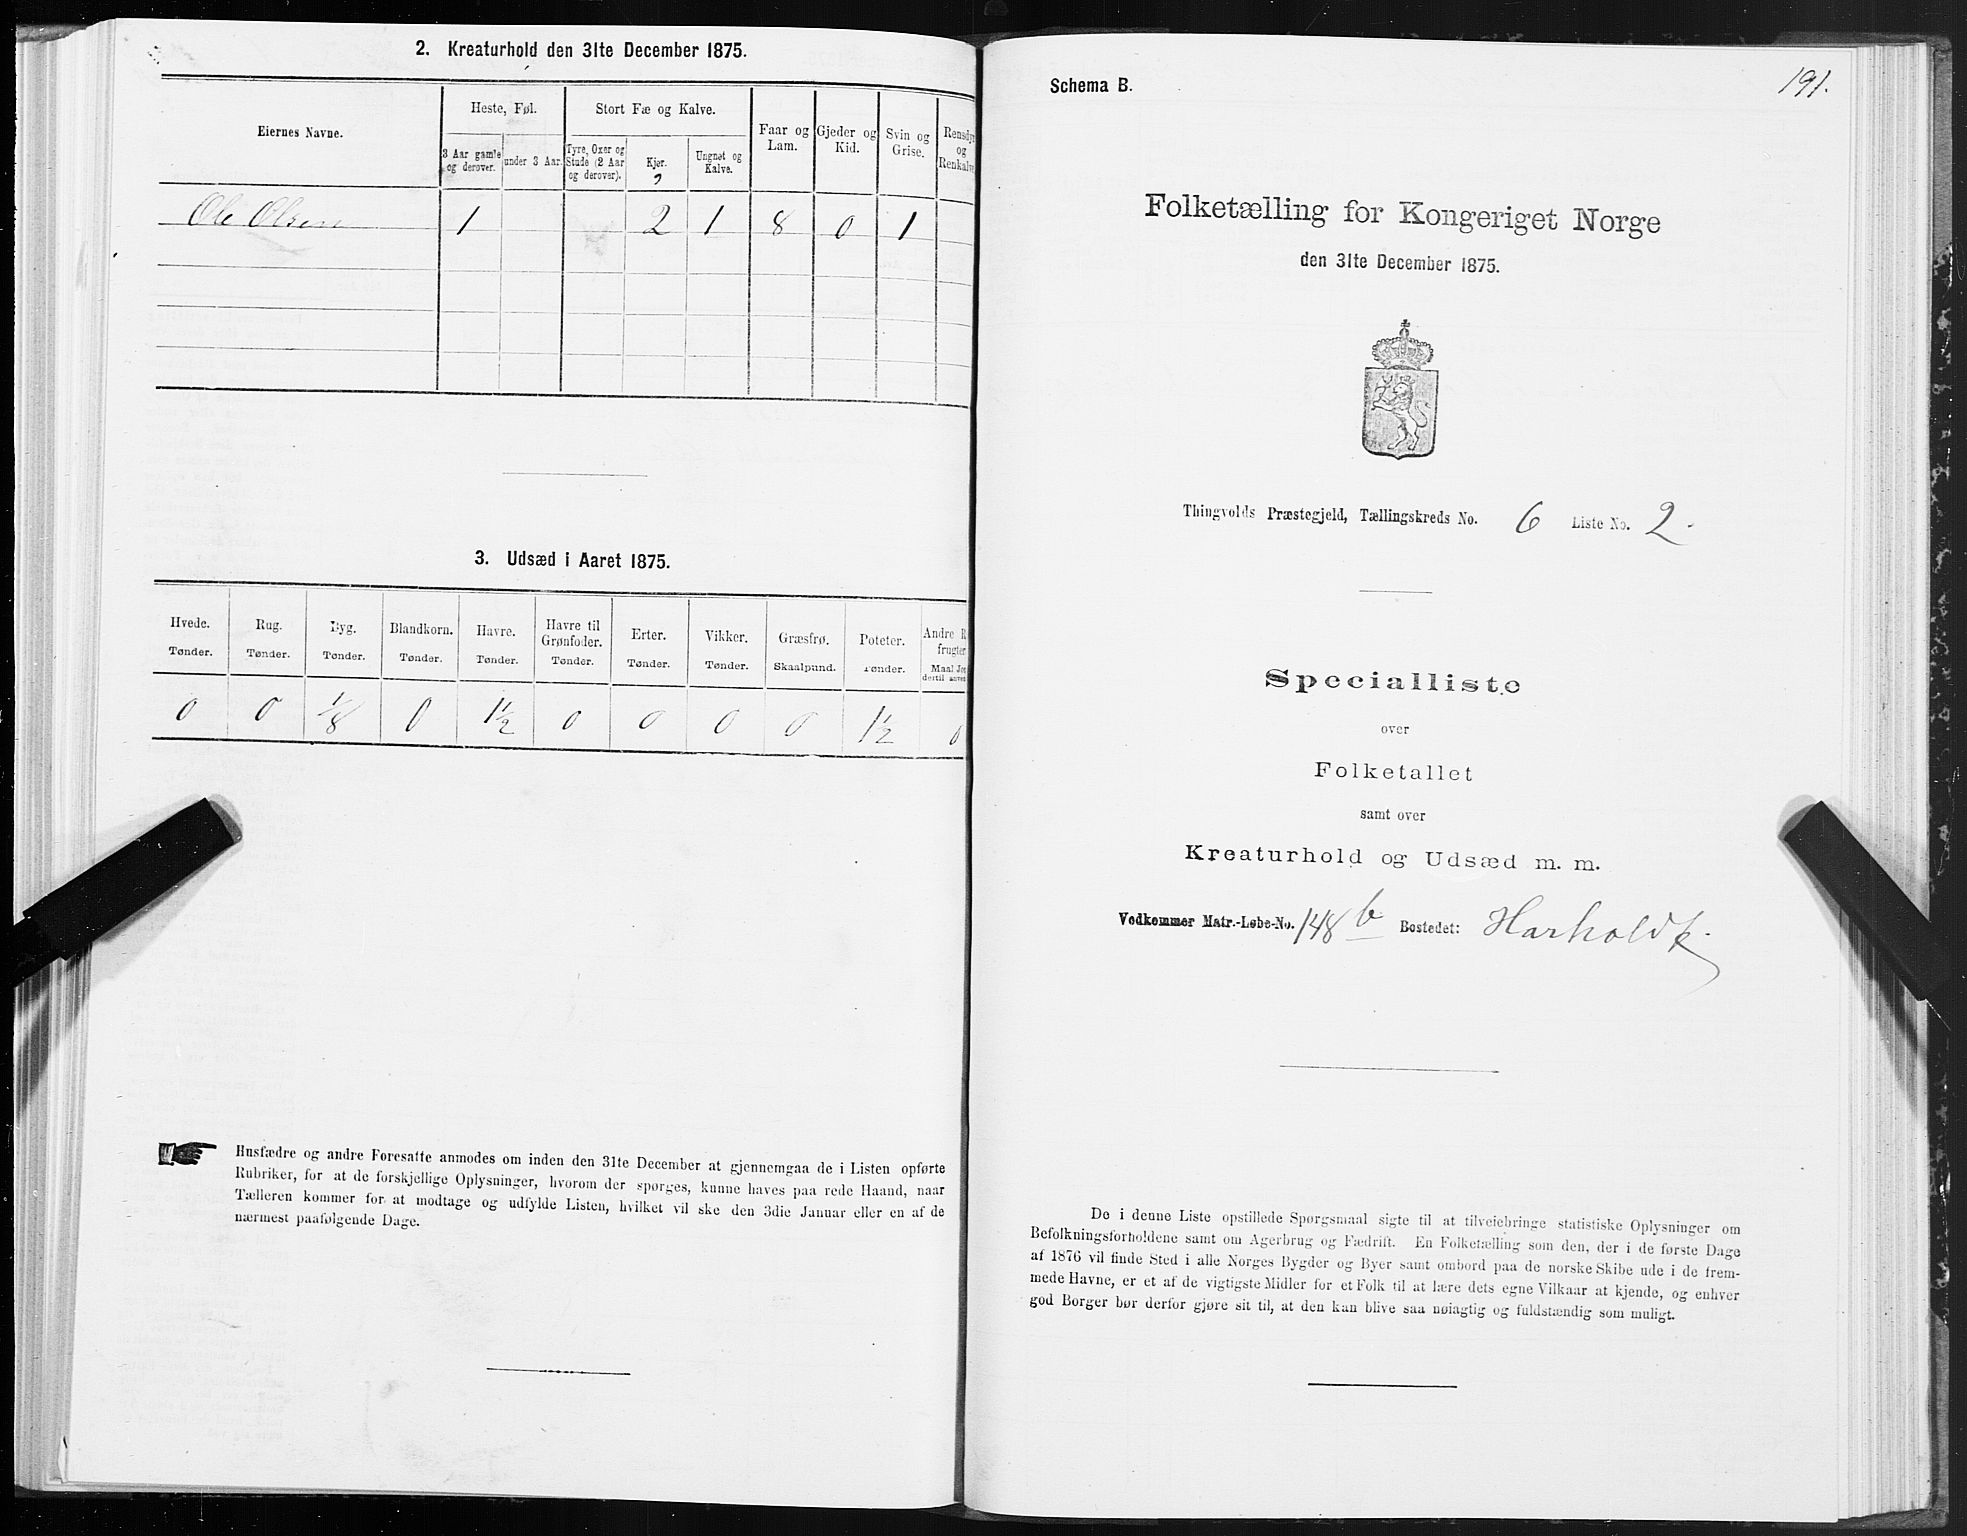 2. Kreaturhold den 31te December 1875.
Eiernes Navne.
Heste, Føl.
Stort Fæ og Kalve.
Faar og Lam.
Gjeder og Kid.
Svin og Grise.
Rensdyr og Renkalve
3 Aar gamle og derover.
under 3 Aar.
Tyre, Oxer og Stude (2 Aar og derover).
Kjør.
Ungnøt og Kalve.
Ole Olsen 1 2 1 8 0 1
3. Udsæd i Aaret 1875.
Hvede. Rug. Byg. Blandkorn. Havre. Havre til Grønfoder. Erter. Vikker. Græsfrø. Poteter. Andre R frugter
Tønder. Tønder. Tønder. Tønder. Tønder. Tønder. Tønder. Tønder. Skaalpund. Tønder. Maal Jor dertil anven
0 0 1/8 0 1 1/2 0 0 0 0 1 1/2 0
Husfædre og andre Foresatte anmodes om inden den 31te December at gjennemgaa de i Listen opførte
Rubriker, for at de forskjellige Oplysninger, hvorom der spørges, kunne haves paa rede Haand, naar
Tælleren kommer for at modtage og udfylde Listen, hvilket vil ske den 3die Januar eller en af de
nærmest paafølgende Dage.
191.
Schema B.
Folketælling for Kongeriget Norge
den 31te December 1875.
Thingvolds Præstegjeld, Tællingskreds No. 6 Liste No. 2.
Specialliste
over
Folketallet
samt over
Kreaturhold og Udsæd m. m.
Vedkommer Matr.-Løbe-No. 148 b Bostedet: Harholdt.
De i denne Liste opstillede Spørgsmaal sigte til at tilveiebringe statistiske Oplysninger om
Befolkningsforholdene samt om Agerbrug og Fædrift. En Folketælling som den, der i de første Dage
af 1876 vil finde Sted i alle Norges Bygder og Byer samt ombord paa de norske Skibe ude i de frem-
mede Havne, er et af de vigtigste Midler for et Folk til at lære dets egne Vilkaar at kjende, og enhver
god Borger bør derfor gjøre sit til, at den kan blive saa nøiagtig og fuldstændig som muligt.